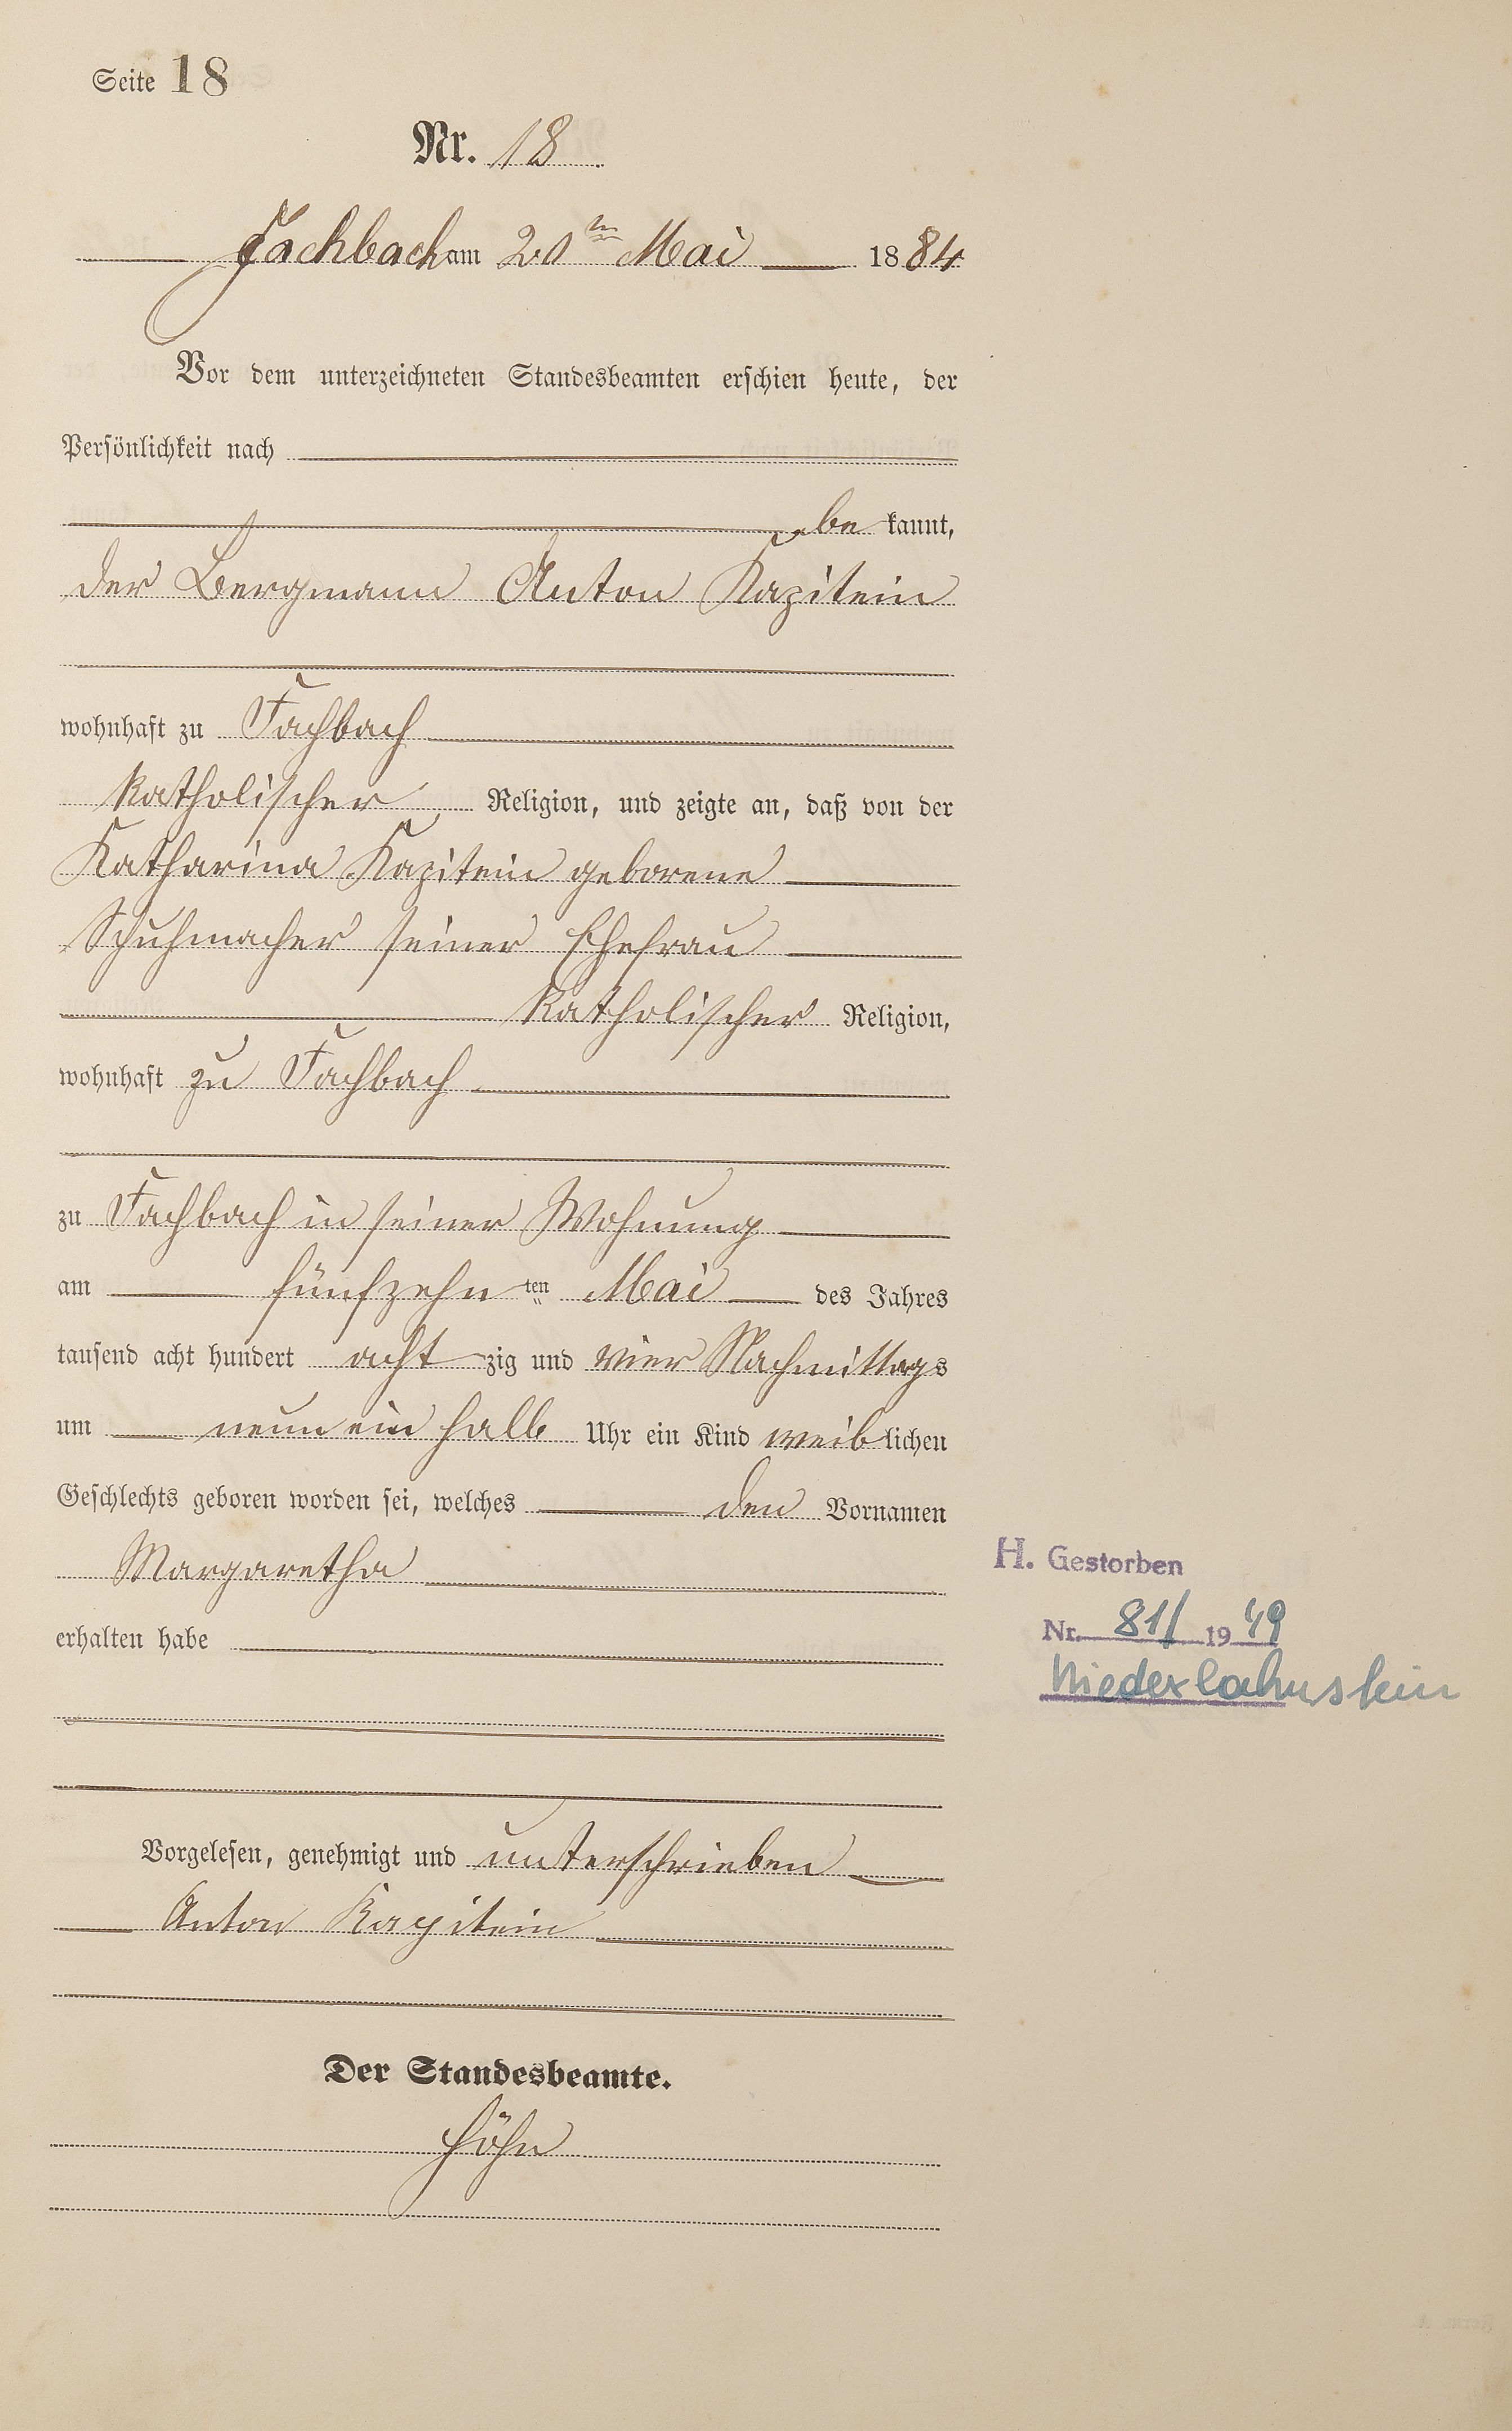 Seite 18
Nr. 18
Fachbach am 20ten Mai 1884
Vor dem unterzeichneten Standesbeamten erschien heute, der
Persönlichkeit nach
bekannt,
der Bergmann Anton Kapitein
wohnhaft zu Fachbach
katholischer Religion, und zeigte an, daß von der
Katharina Kapitein geborene
Schuhmacher seiner Ehefrau
katholischer Religion,
wohnhaft zu Fachbach
zu Fachbach in seiner Wohnung
am fünfzehnten Mai des Jahres
tausend acht hundert achtzig und vier Nachmittags
um neun ein halb Uhr ein Kind weiblichen
Geschlechts geboren worden sei, welches den Vornamen
Margaretha
erhalten habe
H. Gestorben
Nr. 81/ 1949
Niederlahnstein
Vorgelesen, genehmigt und unterschrieben
Anton Kapitein
Der Standesbeamte.
Höhn